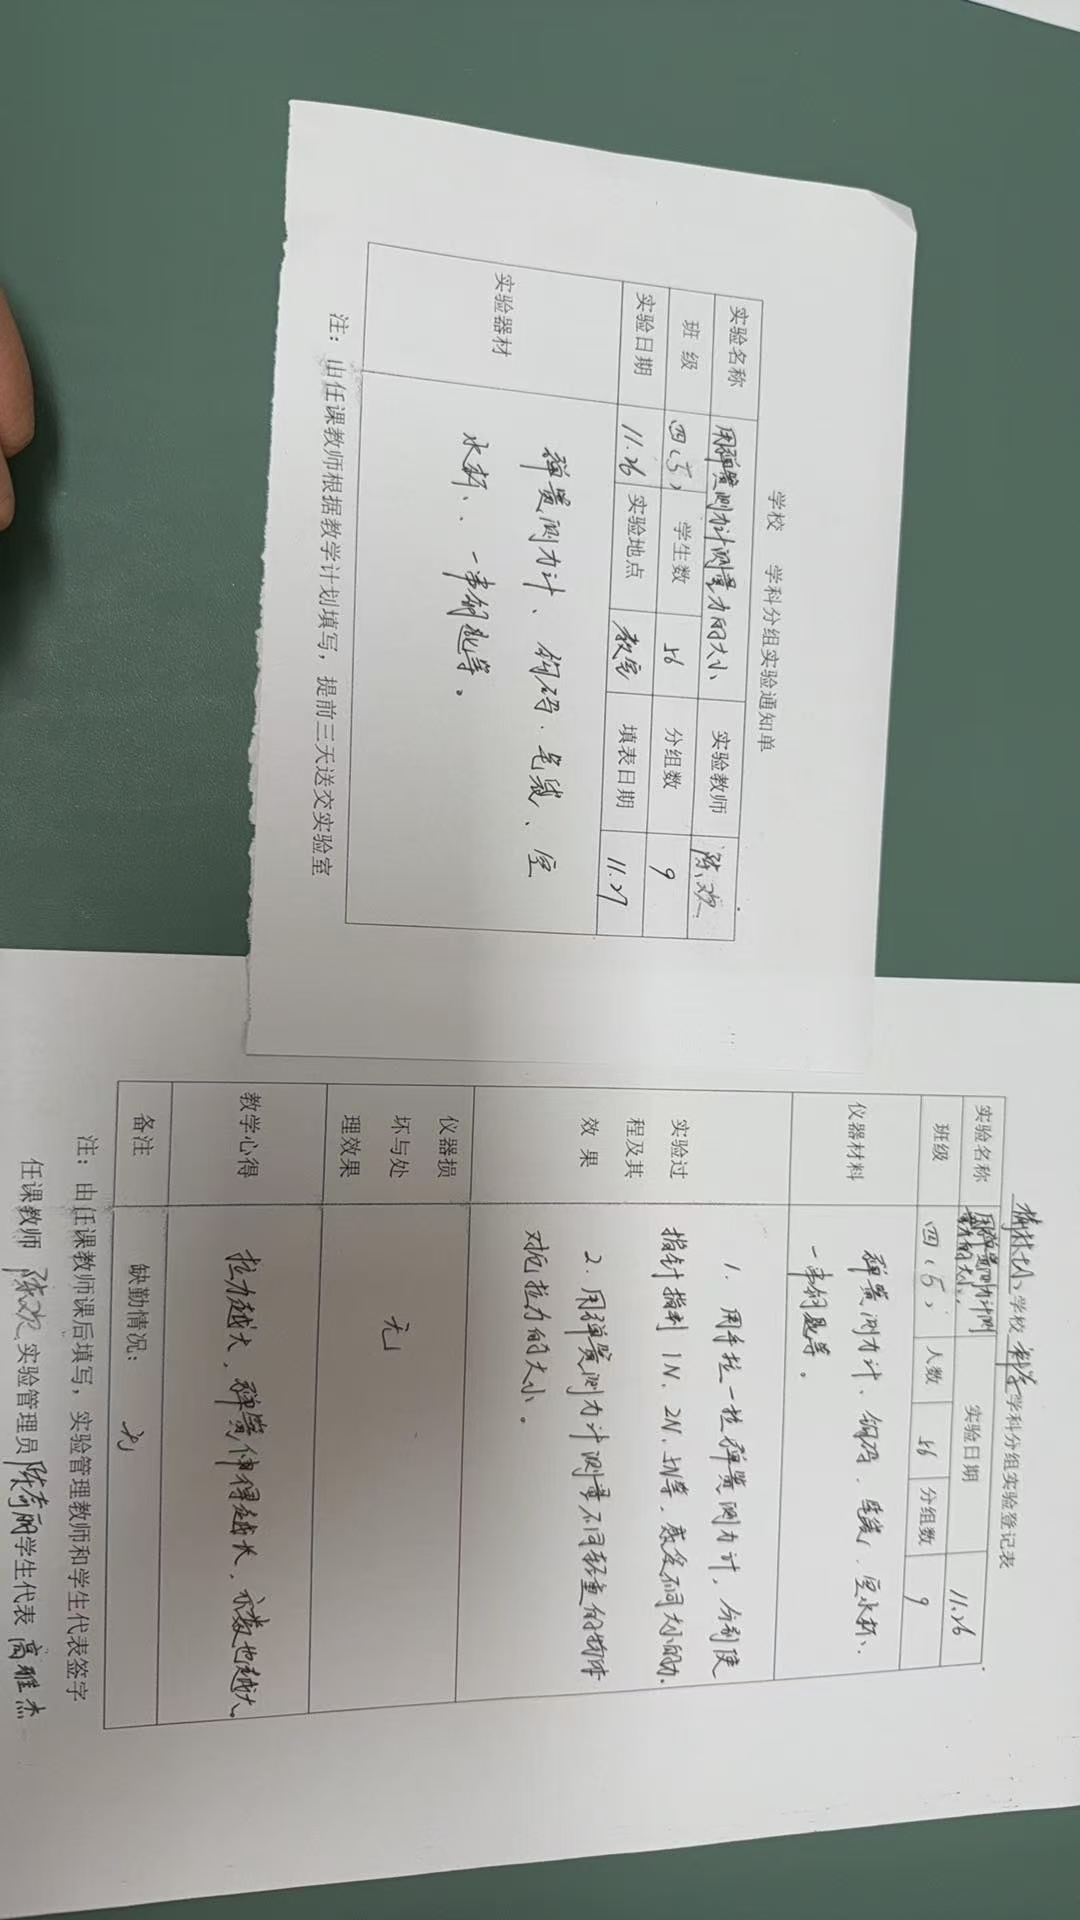 学校 学科分组实验通知单
实验名称 用弹簧测力计测量力的大小 实验教师 陈欢
班级 四(5) 学生数 56 分组数 9
实验日期 11.26 实验地点 教室 填表日期 11.27
实验器材
弹簧测力计、钩码、笔袋、空
水杯、一串钥匙等。
注：由任课教师根据教学计划填写，提前三天送交实验室
学校 科学 学科分组实验登记表
实验名称 用弹簧测力计测
量力的大小 实验日期 11.26
班级 四(5) 人数 56 分组数 9
仪器材料
弹簧测力计、钩码、笔袋、空水杯、
一串钥匙等。
实验过
程及其
效果
1. 用手拉一拉弹簧测力计，分别使
指针指到 1N、2N、5N等，感受不同大小的力.
2. 用弹簧测力计测量不同轻重的物体
对它拉力的大小。
仪器损
坏与处
理效果
无
教学心得
拉力越大，弹簧伸得越长，示数也越大。
备注 缺勤情况： 无
注：由任课教师课后填写，实验管理教师和学生代表签字
任课教师 陈欢 实验管理员 陈秀丽 学生代表 高雅杰